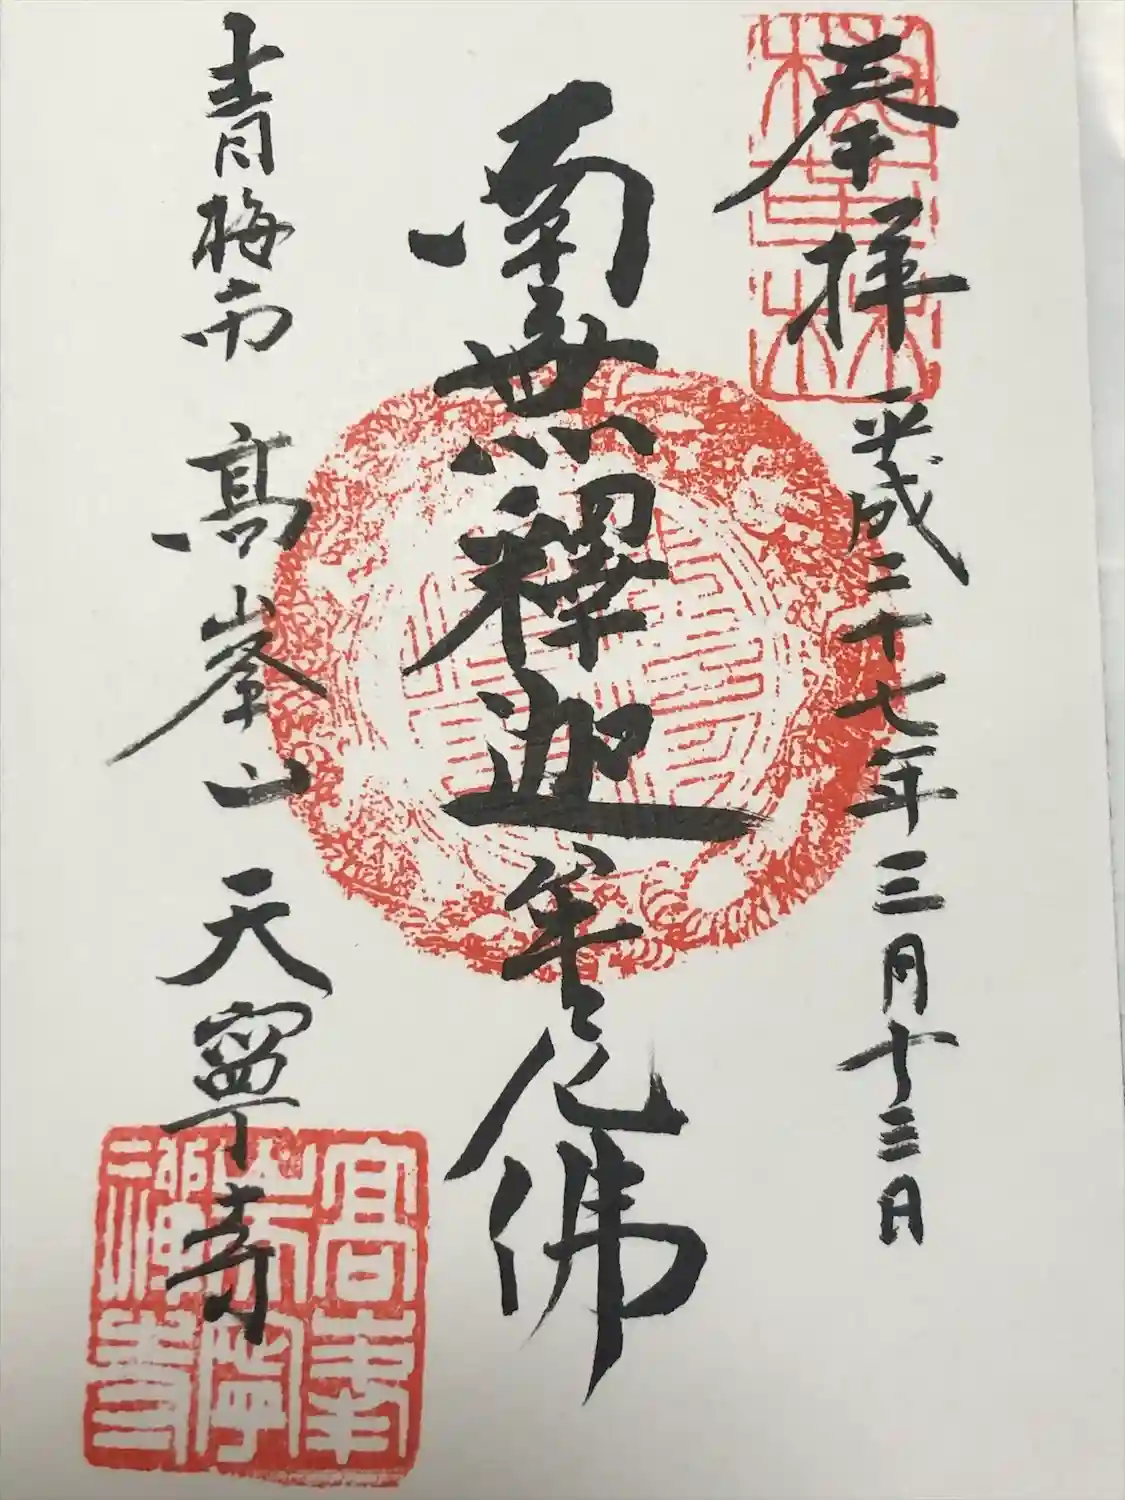 奉拝 平成二十七年三月十三日
南無釋迦牟尼佛
青梅市 高峯山 天寧寺
高峯山天寧禅寺